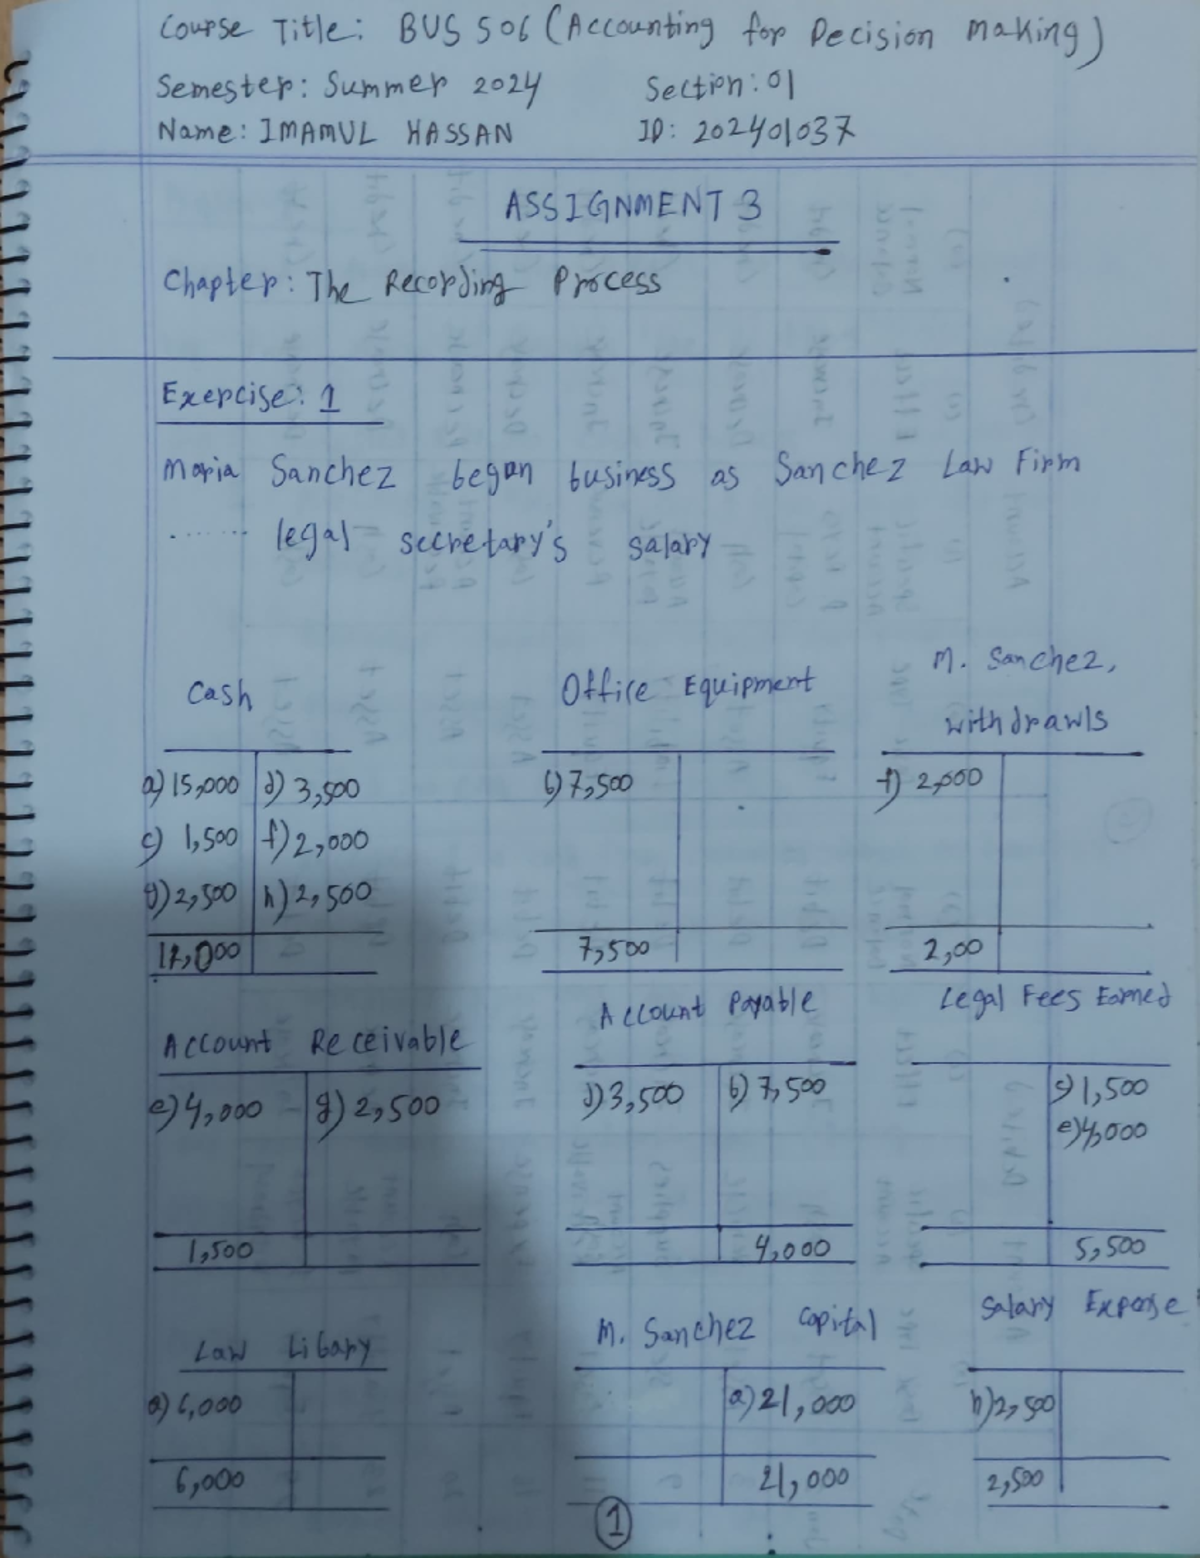 Course Title: BUS 506 (Accounting for Decision Making)
Semester: Summer 2024 Section: 01
Name: IMAMUL HASSAN ID: 202401037
ASSIGNMENT 3
Chapter: The Recording Process
Exercise: 1
Maria Sanchez began business as Sanchez Law Firm
....... legal secretary's salary
Cash
a) 15,000 d) 3,500
c) 1,500 f) 2,000
g) 2,500 h) 2,500
Office Equipment
b) 7,500
7,500
M. Sanchez,
withdrawls
f) 2,000
2,00
Account Receivable
e) 4,000 g) 2,500
1,500
Account Payable
d) 3,500 b) 7,500
4,000
Legal Fees Earned
c) 1,500
e) 4,000
5,500
Law Libary
a) 6,000
6,000
M. Sanchez Capital
a) 21,000
21,000
Salary Expense
h) 2,500
2,500
1